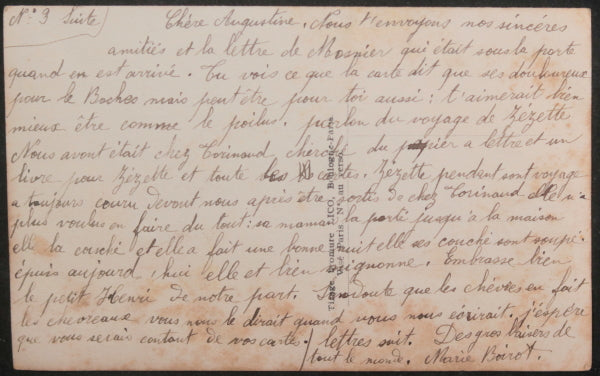 N° 3 Suite Chère Augustine. Nous t'envoyons nos sincéres
amitiés et la lettre de Mosnier qui était sous la porte
quand on est arrivé. Tu vois ce que la carte dit que ses douloureux
pour le Boches mais peut être pour toi aussi: t'aimerait bien
mieux être comme le poilus. parlon du voyage de Zézette
Nous avont était chez Torinaud cherché du papier a lettre et un
livre pour Zézette et toute les cartes. Zézette pendent sont voyage
a toujours couru devent nous aprés être sortis de chez Torinaud elle n'a
plus voulus en faire du tout: sa maman l'a porté jusqu'a la maison
elle la couché et elle a fait une bonne nuit elle ses couché sont soupé.
épuis aujourd, hui elle et bien mignonne. Embrasse bien
le petit Henri de notre part. San doute que les chévres en fait
les chevreaux vous nous le dirait quand vous nous écrirait. j'espére
que vous serais contant de vos cartes. / lettres suit. Des gros baisers de
tout le monde. Marie Boirot.
Tirage Bromure ZICO, Boulogne-Paris
Visé Paris. N° au verso